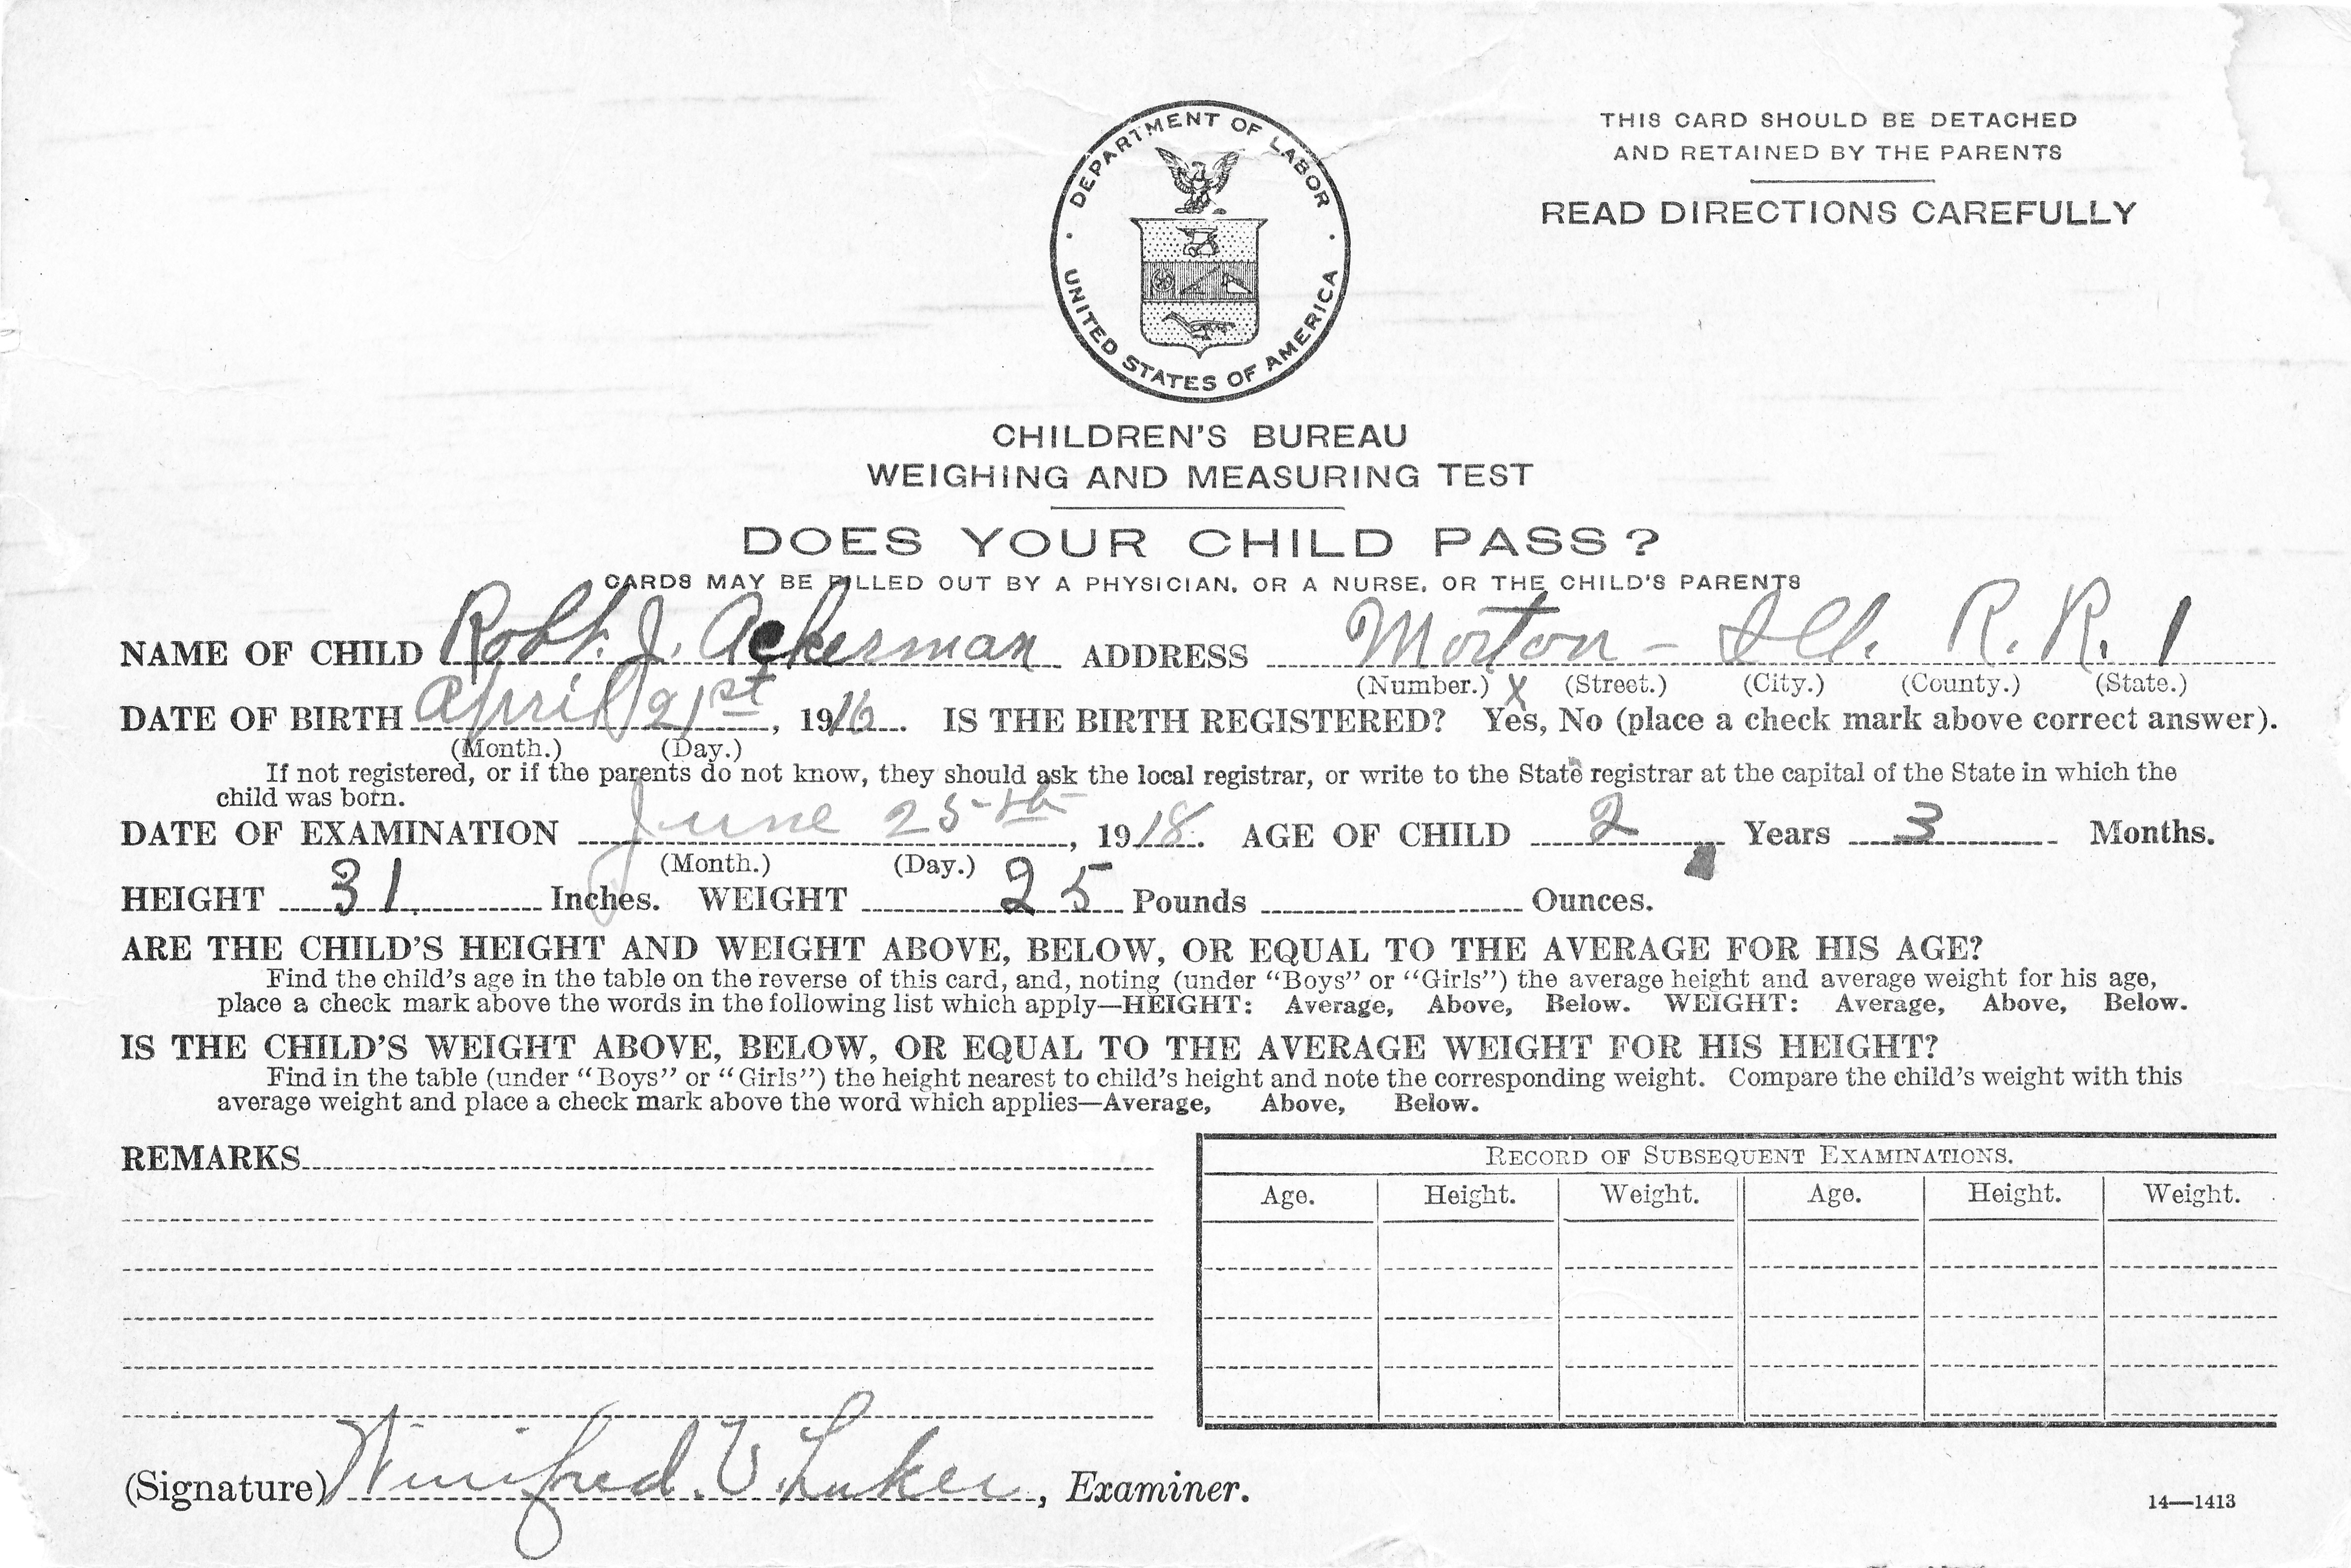 THIS CARD SHOULD BE DETACHED
AND RETAINED BY THE PARENTS
READ DIRECTIONS CAREFULLY
DEPARTMENT OF LABOR
UNITED STATES OF AMERICA
CHILDREN'S BUREAU
WEIGHING AND MEASURING TEST
DOES YOUR CHILD PASS?
CARDS MAY BE FILLED OUT BY A PHYSICIAN, OR A NURSE, OR THE CHILD'S PARENTS
NAME OF CHILD Robt. J. Ackerman ADDRESS Morton - Ill. R. R. 1
(Number.) x (Street.) (City.) (County.) (State.)
DATE OF BIRTH April 21st, 1916. IS THE BIRTH REGISTERED? Yes, No (place a check mark above correct answer).
(Month.) (Day.)
If not registered, or if the parents do not know, they should ask the local registrar, or write to the State registrar at the capital of the State in which the
child was born.
DATE OF EXAMINATION June 25th, 1918. AGE OF CHILD 2 Years 3 Months.
(Month.) (Day.)
HEIGHT 31 Inches. WEIGHT 25 Pounds Ounces.
ARE THE CHILD'S HEIGHT AND WEIGHT ABOVE, BELOW, OR EQUAL TO THE AVERAGE FOR HIS AGE?
Find the child's age in the table on the reverse of this card, and, noting (under "Boys" or "Girls") the average height and average weight for his age,
place a check mark above the words in the following list which apply—HEIGHT: Average, Above, Below. WEIGHT: Average, Above, Below.
IS THE CHILD'S WEIGHT ABOVE, BELOW, OR EQUAL TO THE AVERAGE WEIGHT FOR HIS HEIGHT?
Find in the table (under "Boys" or "Girls") the height nearest to child's height and note the corresponding weight. Compare the child's weight with this
average weight and place a check mark above the word which applies—Average, Above, Below.
REMARKS
RECORD OF SUBSEQUENT EXAMINATIONS.
Age. Height. Weight. Age. Height. Weight.
(Signature) Winifred V., Examiner.
14—1413